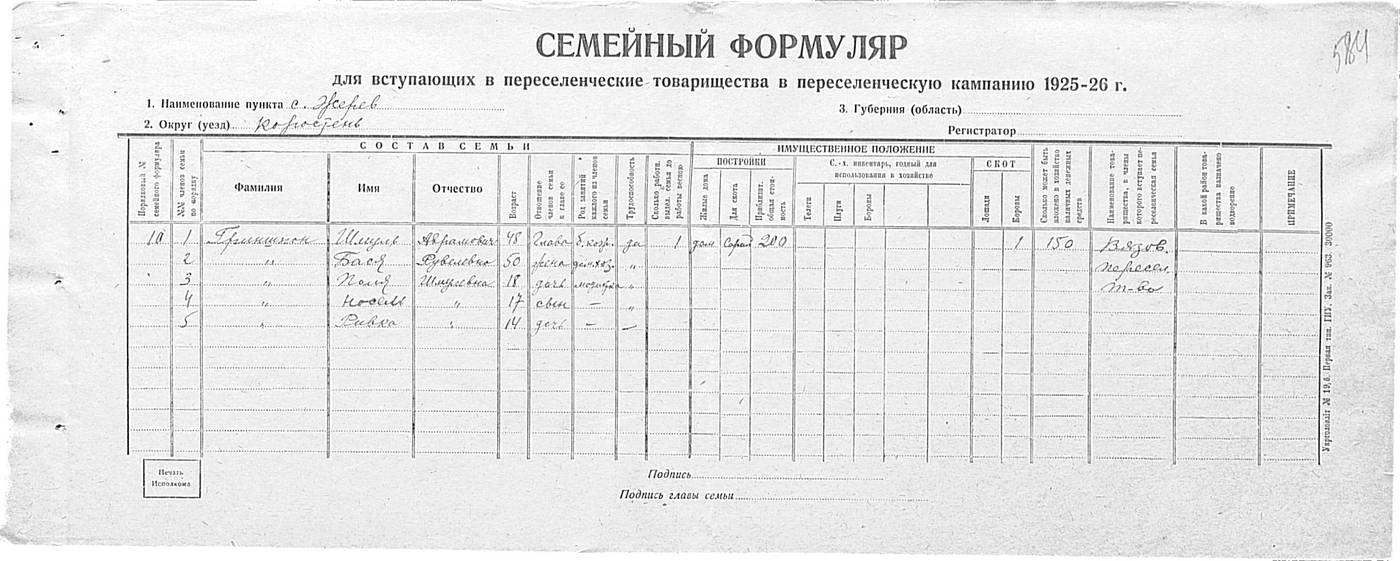 584
СЕМЕЙНЫЙ ФОРМУЛЯР
для вступающих в переселенческие товарищества в переселенческую кампанию 1925-26 г.
1. Наименование пункта с. Жерев
3. Губерния (область)
2. Округ (уезд) Коростень
Регистратор
СОСТАВ СЕМЬИ
ИМУЩЕСТВЕННОЕ ПОЛОЖЕНИЕ
ПОСТРОЙКИ
С.-х. инвентарь, годный для использования в хозяйстве
СКОТ
Порядковый № семейного формуляра
№№ членов семьи по порядку
Фамилия
Имя
Отчество
Возраст
Отношение членов семьи к главе ее
Род занятий каждого из членов семьи
Трудоспособность
Сколько работн. выдел. семья до работы весною
Жилые дома
Для скота
Приблизит. общая стоимость
Телеги
Плуги
Бороны
Лошади
Коровы
Сколько может быть вложено в хозяйство наличных денежных средств
Наименование товарищества, в члены которого вступает переселенческая семья
В какой район товарищества назначено водворение
ПРИМЕЧАНИЕ
10 1 Гриншпон Шмуль Абрамович 48 Глава да 1 дом Сарай 200 1 150 Вязов.
2 " Бася Рувелевна 50 жена дом. хоз. " пересел.
3 " Поля Шмулевна 18 дочь модистка " т-во
4 " Носель " 17 сын — "
5 " Ривка " 14 дочь — —
Печать Исполкома
Подпись
Подпись главы семьи
Укрголовліт № 19,б. Первая тип. ГИУ. Зак. № 963. 30000